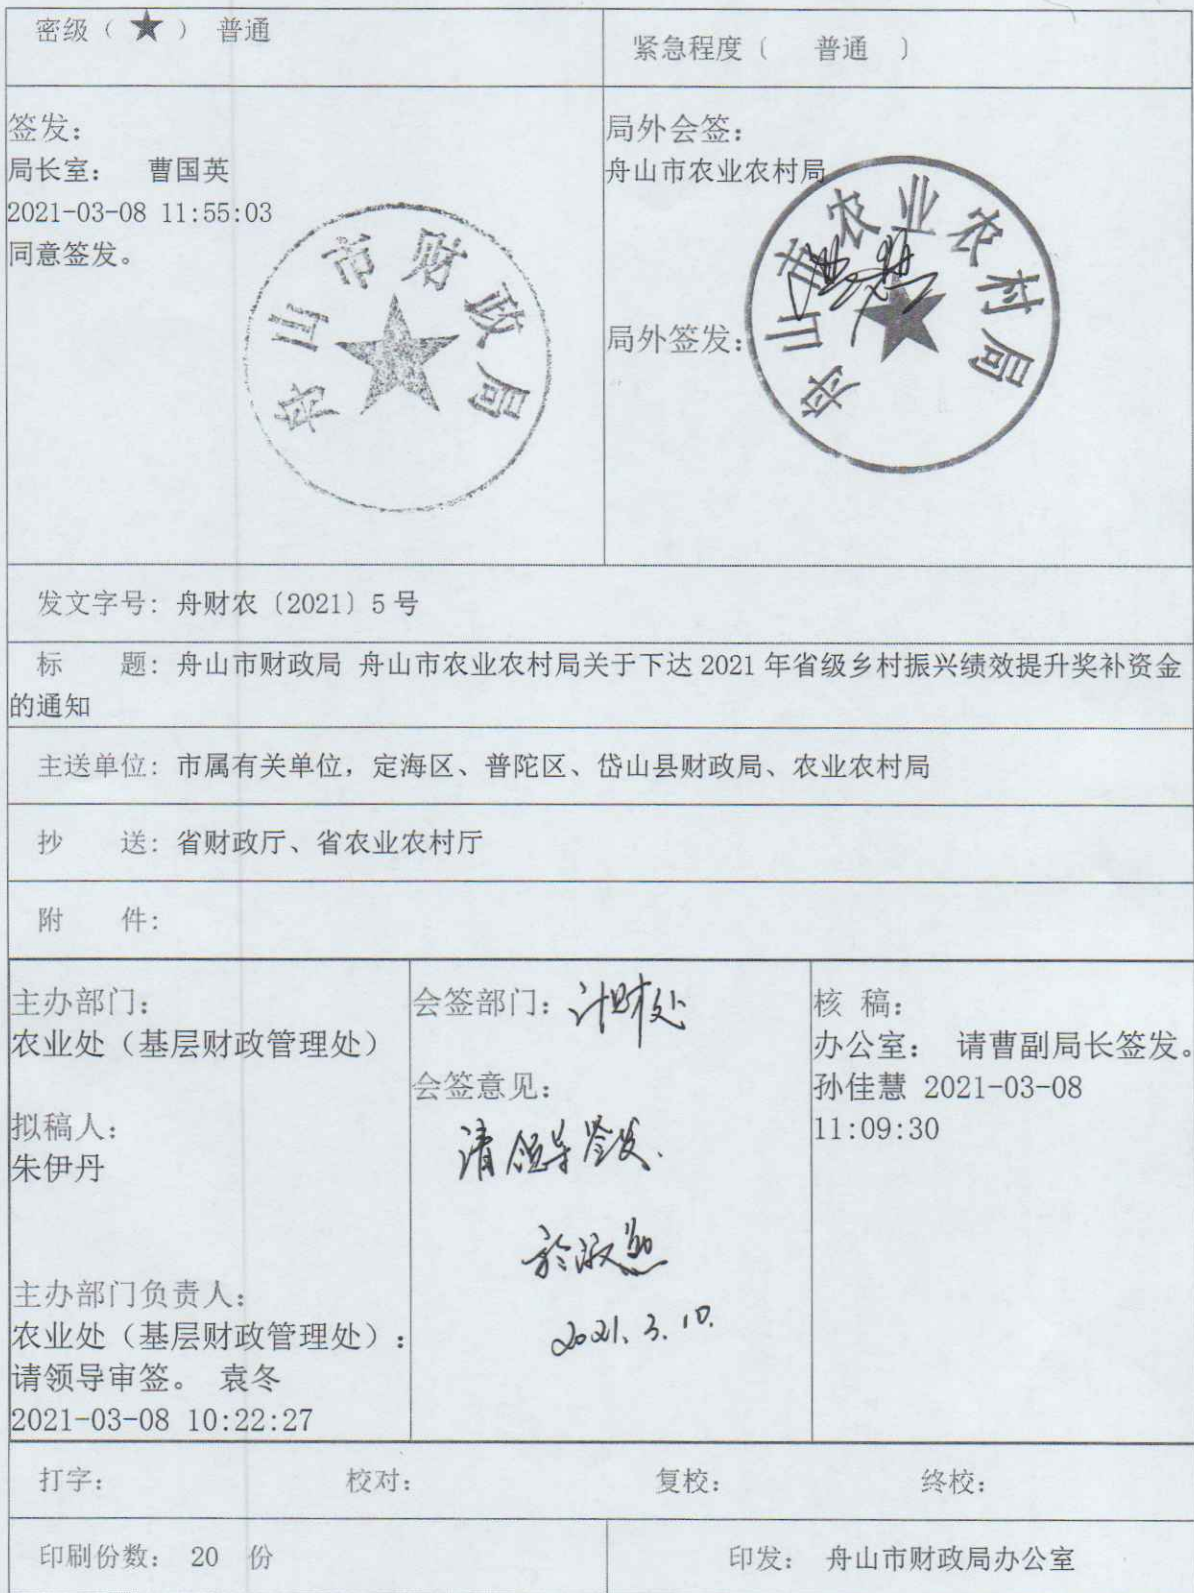 密级（ ★ ） 普通
紧急程度〔 普通 〕
签发：
局长室： 曹国英
2021-03-08 11:55:03
同意签发。
舟山市财政局
局外会签：
舟山市农业农村局
舟山市农业农村局
局外签发：
发文字号：舟财农〔2021〕5号
标 题：舟山市财政局 舟山市农业农村局关于下达 2021 年省级乡村振兴绩效提升奖补资金
的通知
主送单位：市属有关单位，定海区、普陀区、岱山县财政局、农业农村局
抄 送：省财政厅、省农业农村厅
附 件：
主办部门：
农业处（基层财政管理处）
拟稿人：
朱伊丹
主办部门负责人：
农业处（基层财政管理处）：
请领导审签。 袁冬
2021-03-08 10:22:27
会签部门：计财处
会签意见：
请领导签发.
2021.3.10.
核 稿：
办公室： 请曹副局长签发。
孙佳慧 2021-03-08
11:09:30
打字： 校对： 复校： 终校：
印刷份数： 20 份
印发： 舟山市财政局办公室